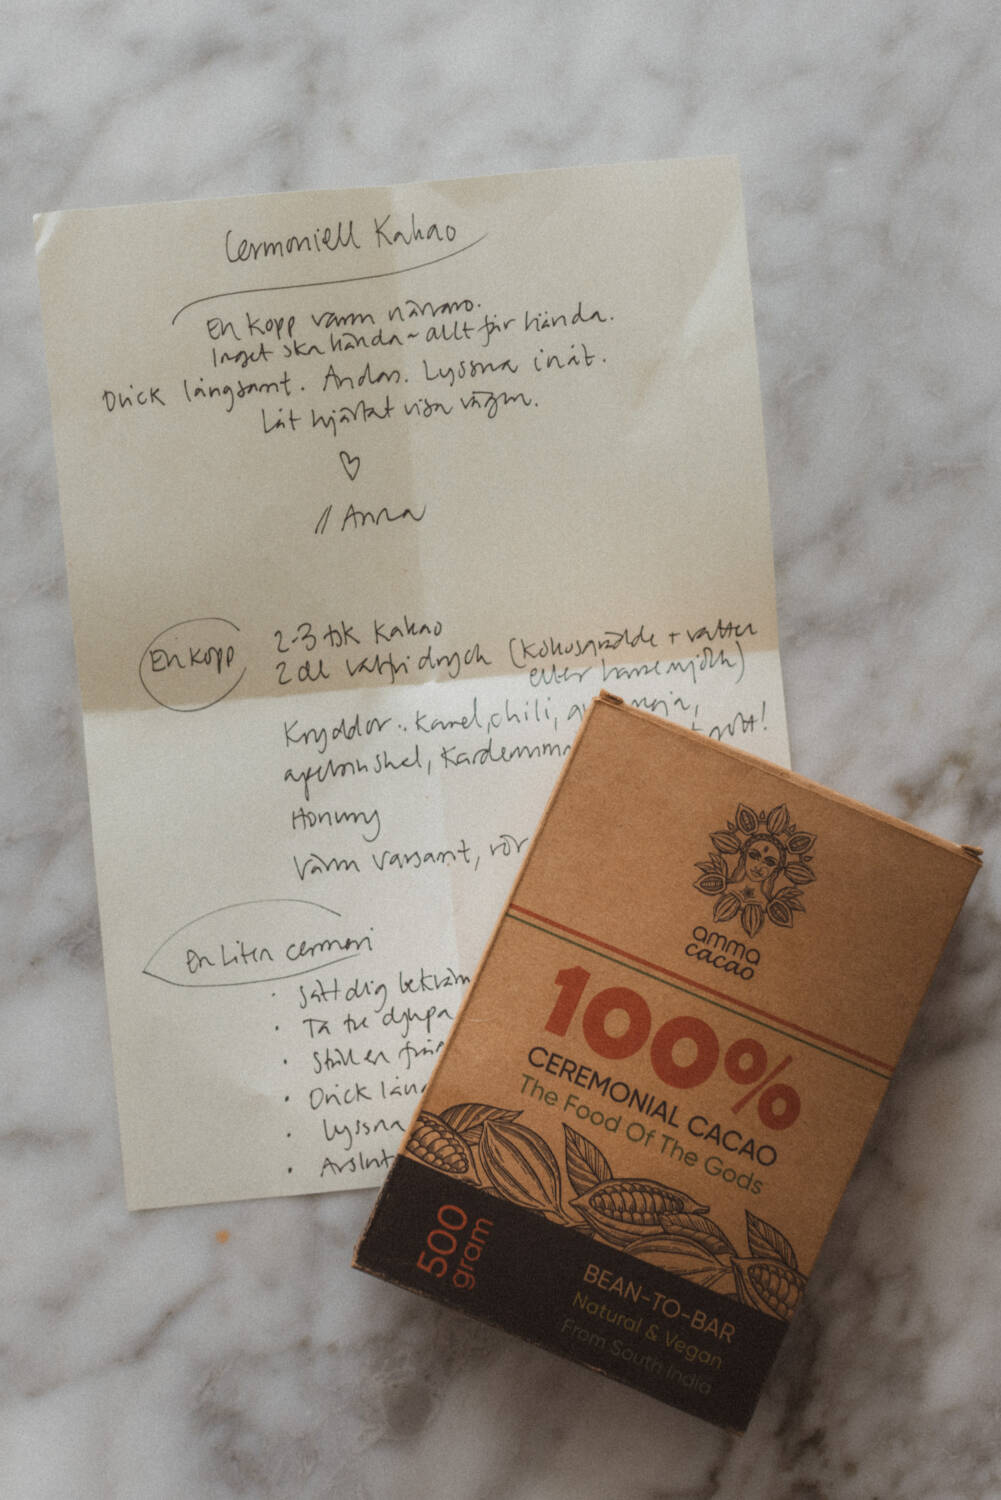 Cermoniell Kakao
En kopp varm närvaro.
Inget ska hända ~ allt får hända.
Drick långsamt. Andas. Lyssna inåt.
Låt hjärtat visa vägen.
♡
// Anna
En kopp
2-3 tsk Kakao
2 dl valfri dryck (Kokosgrädde + vatten
eller havremjölk)
Kryddor: kanel, chili,
apelsinskal,
Honung
Värm varsamt, rör
En liten cermoni
· Sätt dig bekväm
· Ta tre djupa
· Ställ en
· Drick
· Lyssna
·
amma
cacao
100%
CEREMONIAL CACAO
The Food Of The Gods
500
gram
BEAN-TO-BAR
Natural & Vegan
From South India